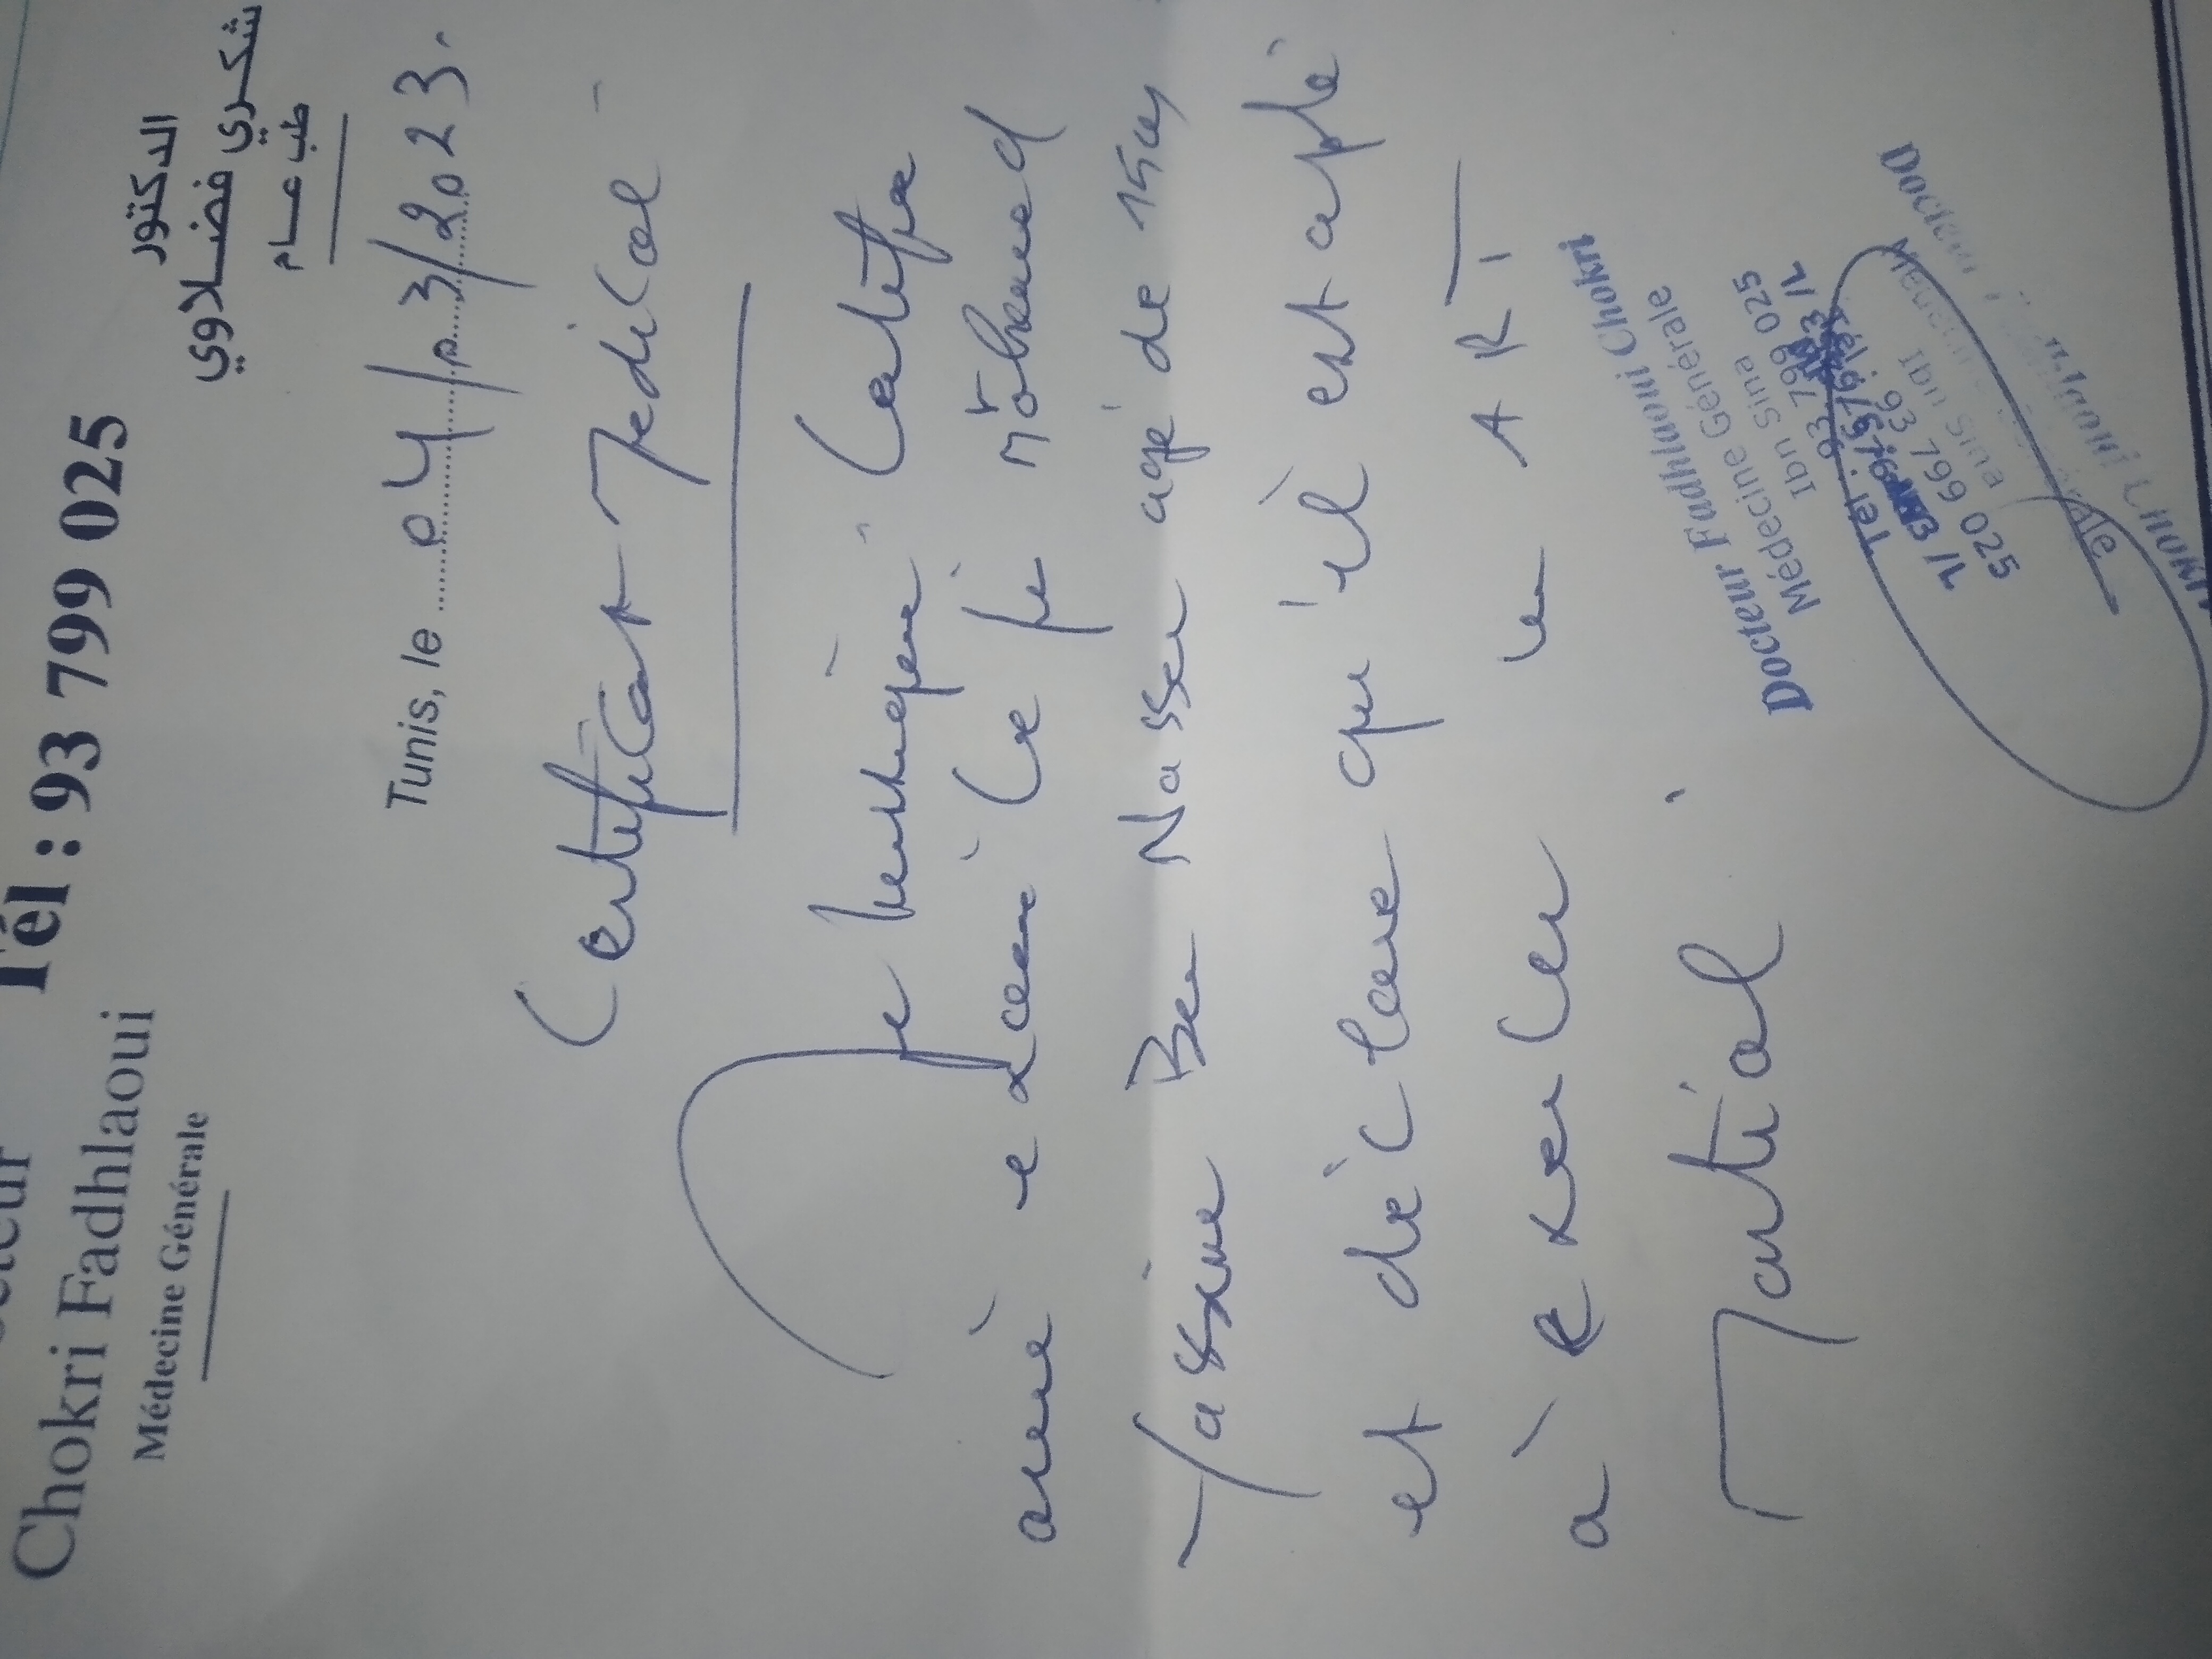 Chokri Fadhlaoui
Médecine Générale
Tél : 93 799 025
الدكتور
شكري فضلاوي
طب عام
Tunis, le 04/03/2023.
Certificat Medical
Je soussigné Certifie
avoir examiné ce jr Mr Mohamed
Yassine Ben Nasser agé de 15 ans
et déclare qu'il est apte
à exercer un ART
Martial
Docteur Fadhlaoui Chokri
Médecine Générale
Ibn Sina
Tél: 93 799 025